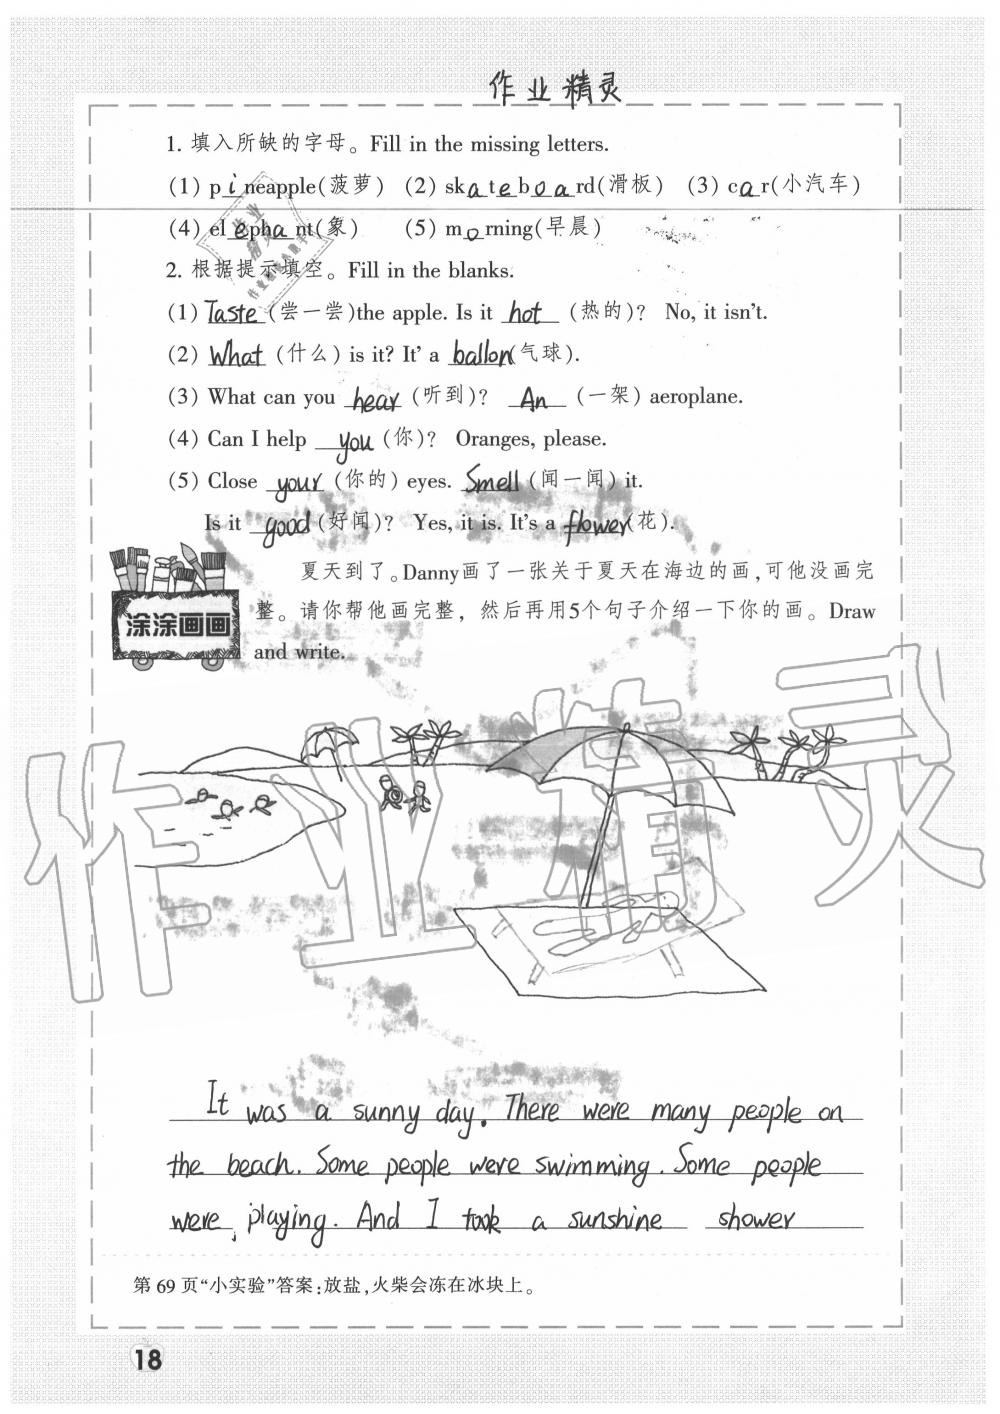 作业精灵
1. 填入所缺的字母。Fill in the missing letters.
(1) pineapple(菠萝) (2) skateboard(滑板) (3) car(小汽车)
(4) elephant(象) (5) morning(早晨)
2. 根据提示填空。Fill in the blanks.
(1) Taste (尝一尝)the apple. Is it hot (热的)? No, it isn't.
(2) What (什么) is it? It' a ballon(气球).
(3) What can you hear (听到)? An (一架) aeroplane.
(4) Can I help you (你)? Oranges, please.
(5) Close your (你的) eyes. Smell (闻一闻) it.
Is it good (好闻)? Yes, it is. It's a flower(花).
夏天到了。Danny画了一张关于夏天在海边的画,可他没画完
涂涂画画
整。请你帮他画完整，然后再用5个句子介绍一下你的画。Draw
and write.
作业精灵
It was a sunny day. There were many people on
the beach. Some people were swimming. Some people
were playing. And I took a sunshine shower
第69页“小实验”答案:放盐,火柴会冻在冰块上。
18